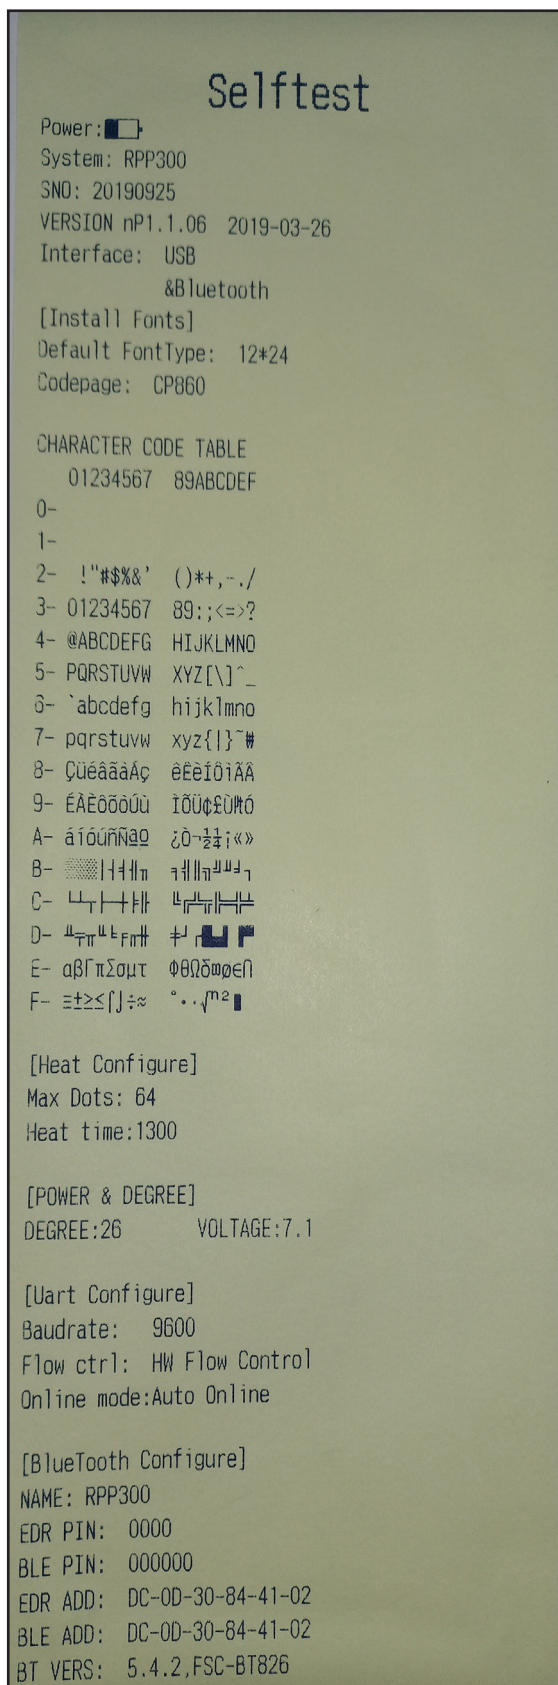 Selftest
Power:
System: RPP300
SNO: 20190925
VERSION nP1.1.06 2019-03-26
Interface: USB
&Bluetooth
[Install Fonts]
Default FontType: 12*24
Codepage: CP860
CHARACTER CODE TABLE
01234567 89ABCDEF
0-
1-
2- !"#$%&' ()*+,-./
3- 01234567 89:;<=>?
4- @ABCDEFG HIJKLMNO
5- PQRSTUVW XYZ[\]^_
6- `abcdefg hijklmno
7- pqrstuvw xyz{|}~
8- ÇüéâãàÁç êÊèÍÔìÃÂ
9- ÉÀÈôõòÚù ÌÕÜ¢£Ù₧Ó
A- áíóúñÑªº ¿Ò¬½¼¡«»
B- ░▒▓│┤╡╢╖ ╕╣║╗╝╜╛┐
C- └┴┬├─┼╞╟ ╚╔╩╦╠═╬╧
D- ╨╤╥╙╘╒╓╫ ╪┘┌█▄▌▐▀
E- αβΓπΣσμτ ΦθΩδ∞øϵ∩
F- ≡±≥≤⌠⌡÷≈ °∙·√ⁿ²■
[Heat Configure]
Max Dots: 64
Heat time:1300
[POWER & DEGREE]
DEGREE:26 VOLTAGE:7.1
[Uart Configure]
Baudrate: 9600
Flow ctrl: HW Flow Control
Online mode:Auto Online
[BlueTooth Configure]
NAME: RPP300
EDR PIN: 0000
BLE PIN: 000000
EDR ADD: DC-0D-30-84-41-02
BLE ADD: DC-0D-30-84-41-02
BT VERS: 5.4.2,FSC-BT826